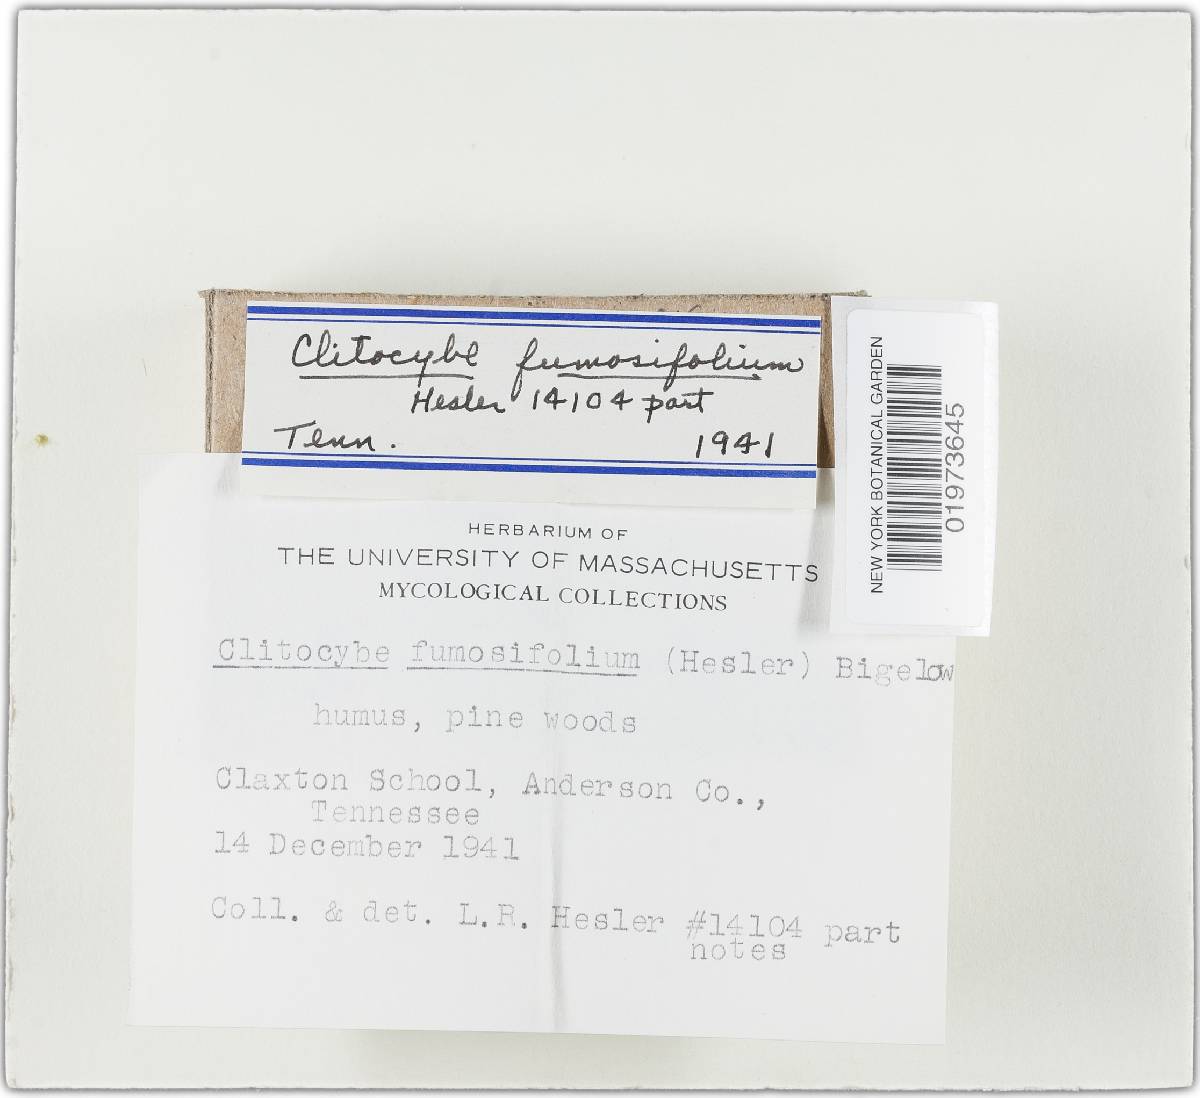 Clitocybe fumosifolium
Hesler 14104 part
Tenn. 1941
NEW YORK BOTANICAL GARDEN
01973645
HERBARIUM OF
THE UNIVERSITY OF MASSACHUSETTS
MYCOLOGICAL COLLECTIONS
Clitocybe fumosifolium (Hesler) Bigelow
humus, pine woods
Claxton School, Anderson Co.,
Tennessee
14 December 1941
Coll. & det. L.R. Hesler #14104 part
notes